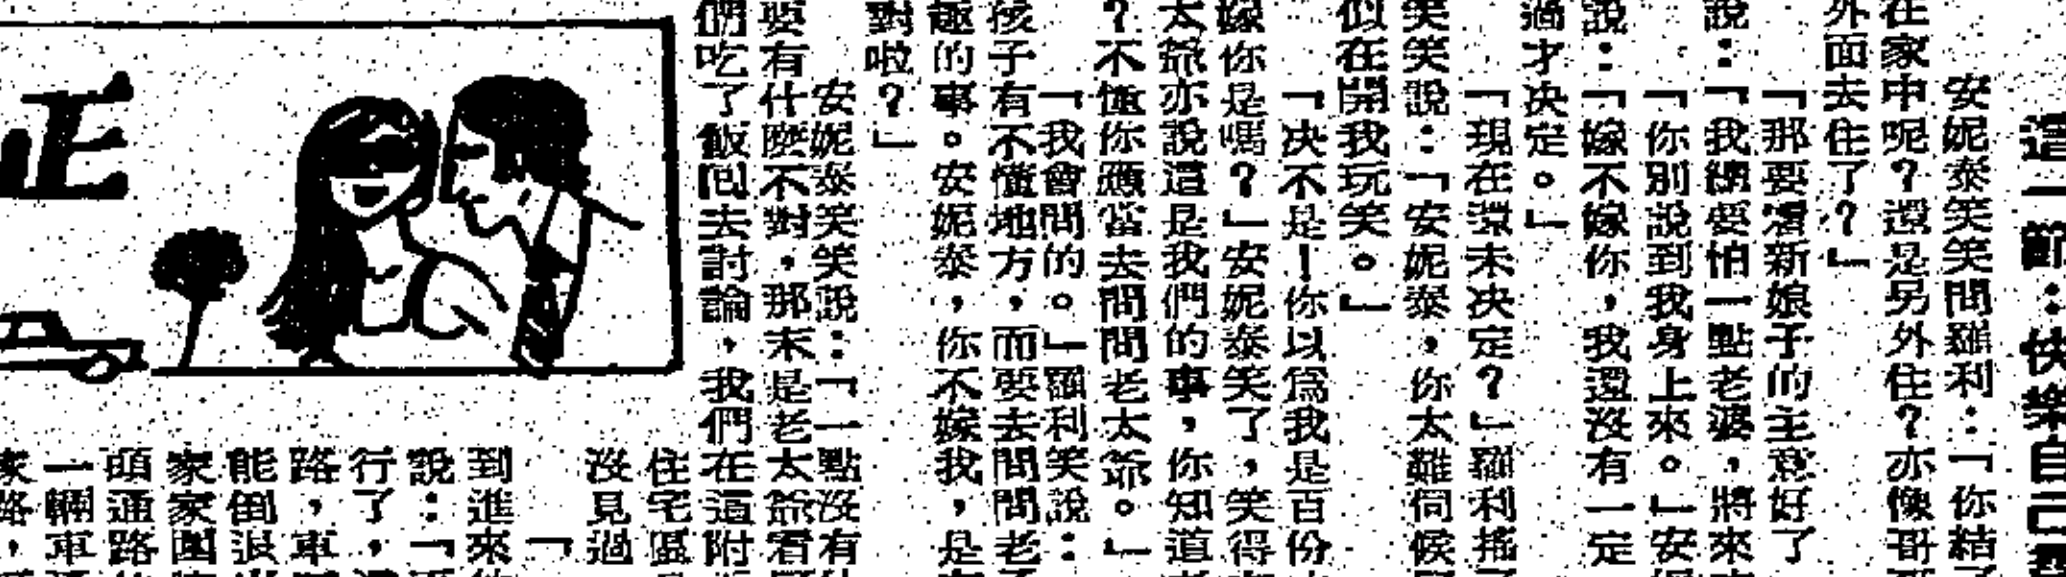 這一節：快樂自己
安妮泰笑笑問羅利：「你結
在家中呢？還是另外住？亦像哥
外面去住了？」
「那要看新娘子的主意好了
說：「我總要怕一點老婆，將來
「你別說到我身上來。」安
說：「嫁不嫁你，我還沒有一定
過才决定。」
「現在還未决定？」羅利搖
笑笑說：「安妮泰，你太難伺候
似在開我玩笑。」
「决不是！你以爲我是百份
嫁你是嗎？」安妮泰笑了，笑得
太爺亦說這是我們的事，你知道
？不懂你應當去問問老太爺。」
「我會問的。」羅利笑說：
孩子有不懂地方，而要去問問老
趣的事。安妮泰，你不嫁我，是
對啦？」
安妮泰笑笑說：「一點沒有
要有什麼不對，那末是老太爺看
們吃了飯回去討論，我們在這附
住宅區
沒見過
「
到進來
說：「
行了，
路，車
能倒退
家家圍
頭通路
一輛車
家路，